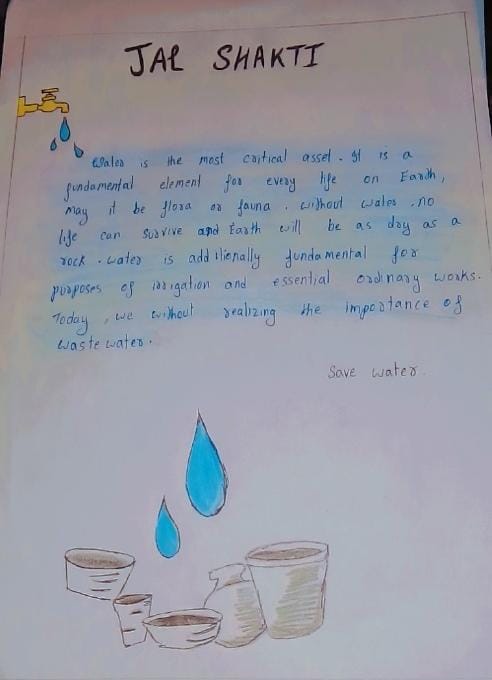 JAL SHAKTI
Water is the most critical asset. It is a
fundamental element for every life on Earth,
may it be flora or fauna. without water, no
life can survive and Earth will be as dry as a
rock. water is additionally fundamental for
purposes of irrigation and essential ordinary works.
Today, we without realizing the importance of
waste water.
Save water.